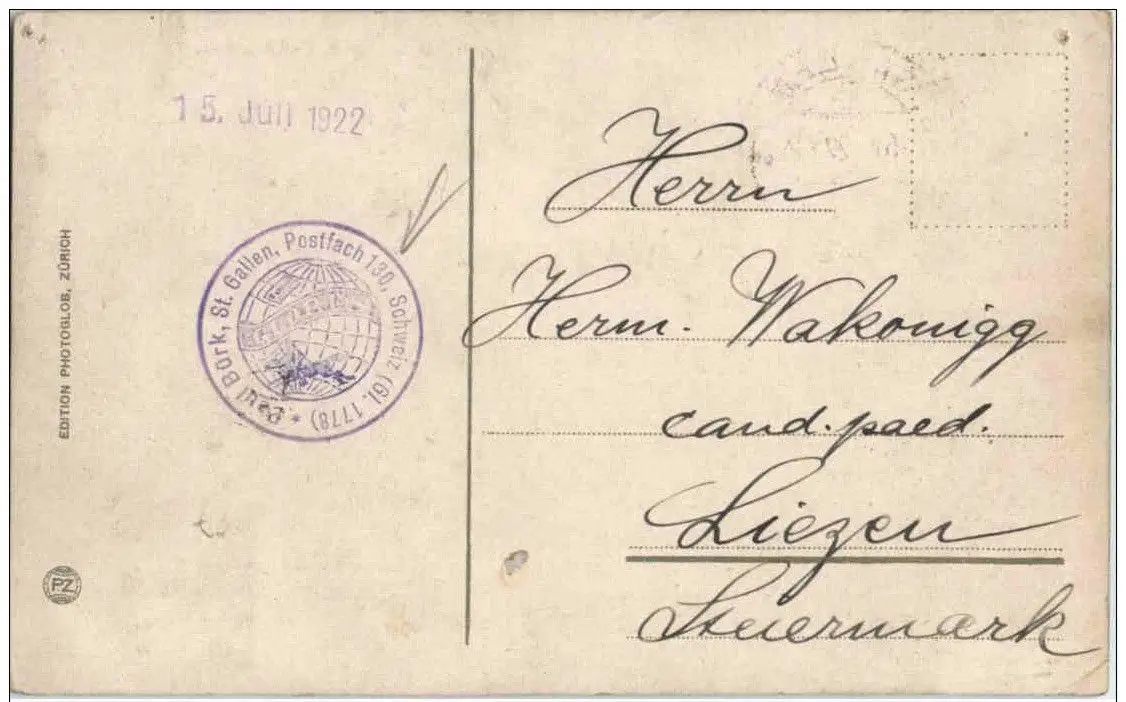 15. Juli 1922
Paul Bork, St. Gallen, Postfach 130, Schweiz (Gl. 1778) *
EDITION PHOTOGLOB, ZÜRICH
PZ
Herrn
Herm. Wakonigg
cand. paed.
Liezen
Steiermark